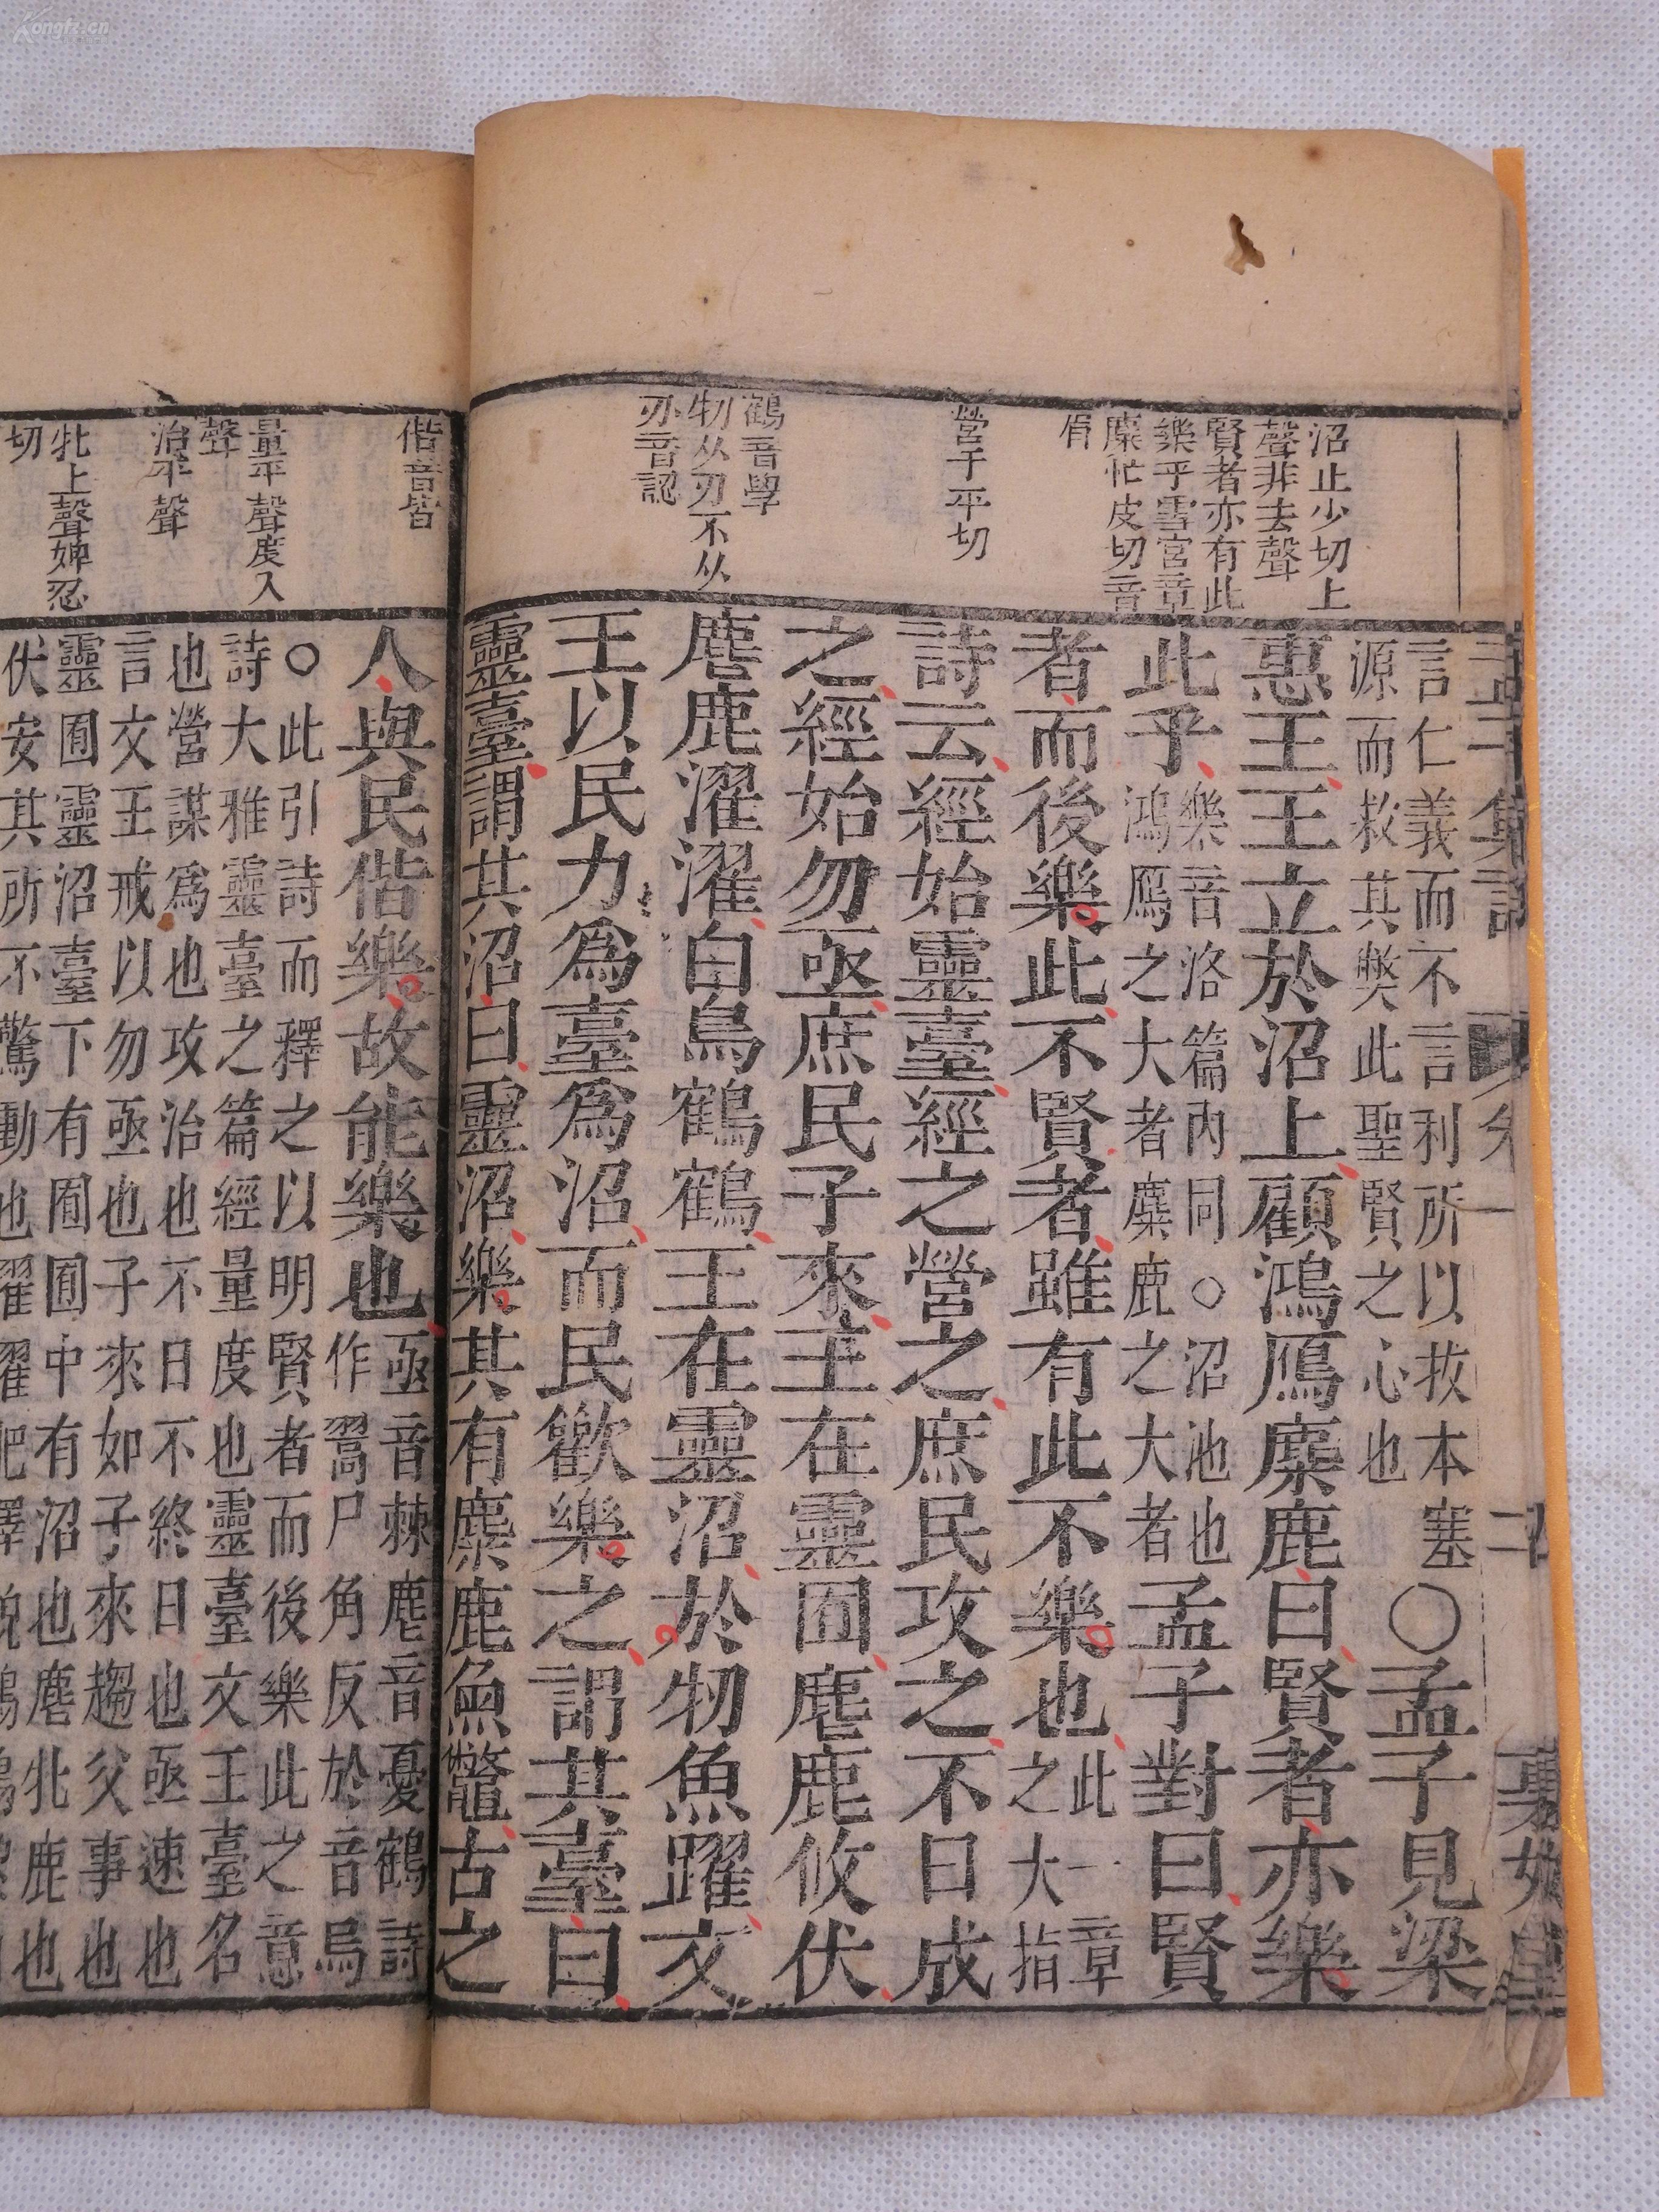 Kongfz.cn
沼止少切上
聲非去聲
賢者亦有此
樂乎雪宮章
麋忙皮切音
眉
營于平切
鶴音學
牣从刃不从
刅音認
孟子集註
卷一
二
言仁義而不言利所以拔本塞
源而救其獘此聖賢之心也
〇孟子見梁
惠王王立於沼上顧鴻鴈麋鹿曰賢者亦樂
此乎
樂音洛篇内同〇沼池也
鴻鴈之大者麋鹿之大者
孟子對曰賢
者而後樂此不賢者雖有此不樂也
此一章
之大指
詩云經始靈臺經之營之庶民攻之不日成
之經始勿亟庶民子來王在靈囿麀鹿攸伏
麀鹿濯濯白鳥鶴鶴王在靈沼於牣魚躍文
王以民力為臺為沼而民歡樂之謂其臺曰
靈臺謂其沼曰靈沼樂其有麋鹿魚鼈古之
偕音皆
量平聲度入
聲
治平聲
牝上聲婢忍
切
人與民偕樂故能樂也
亟音棘麀音憂鶴詩
作翯戸角反於音烏
〇此引詩而釋之以明賢者而後樂此之意
詩大雅靈臺之篇經量度也靈臺文王臺名
也營謀為也攻治也不日不終日也亟速也
言文王戒以勿亟也子來如子來趨父事也
靈囿靈沼臺下有囿囿中有沼也麀牝鹿也
伏安其所不驚動也濯濯肥澤貌